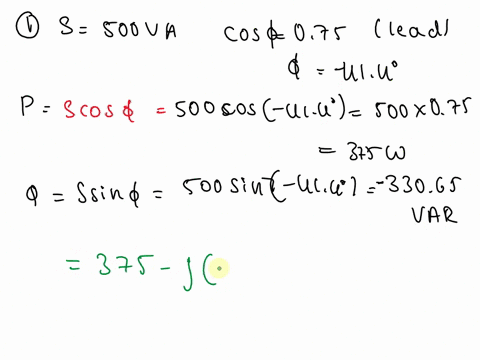 ① S = 500 VA cosϕ = 0.75 (lead)
ϕ = -41.4°
P = S cos ϕ = 500 cos(-41.4°) = 500 × 0.75
= 375 W
Q = S sin ϕ = 500 sin(-41.4°) = -330.65
VAR
= 375 - j(